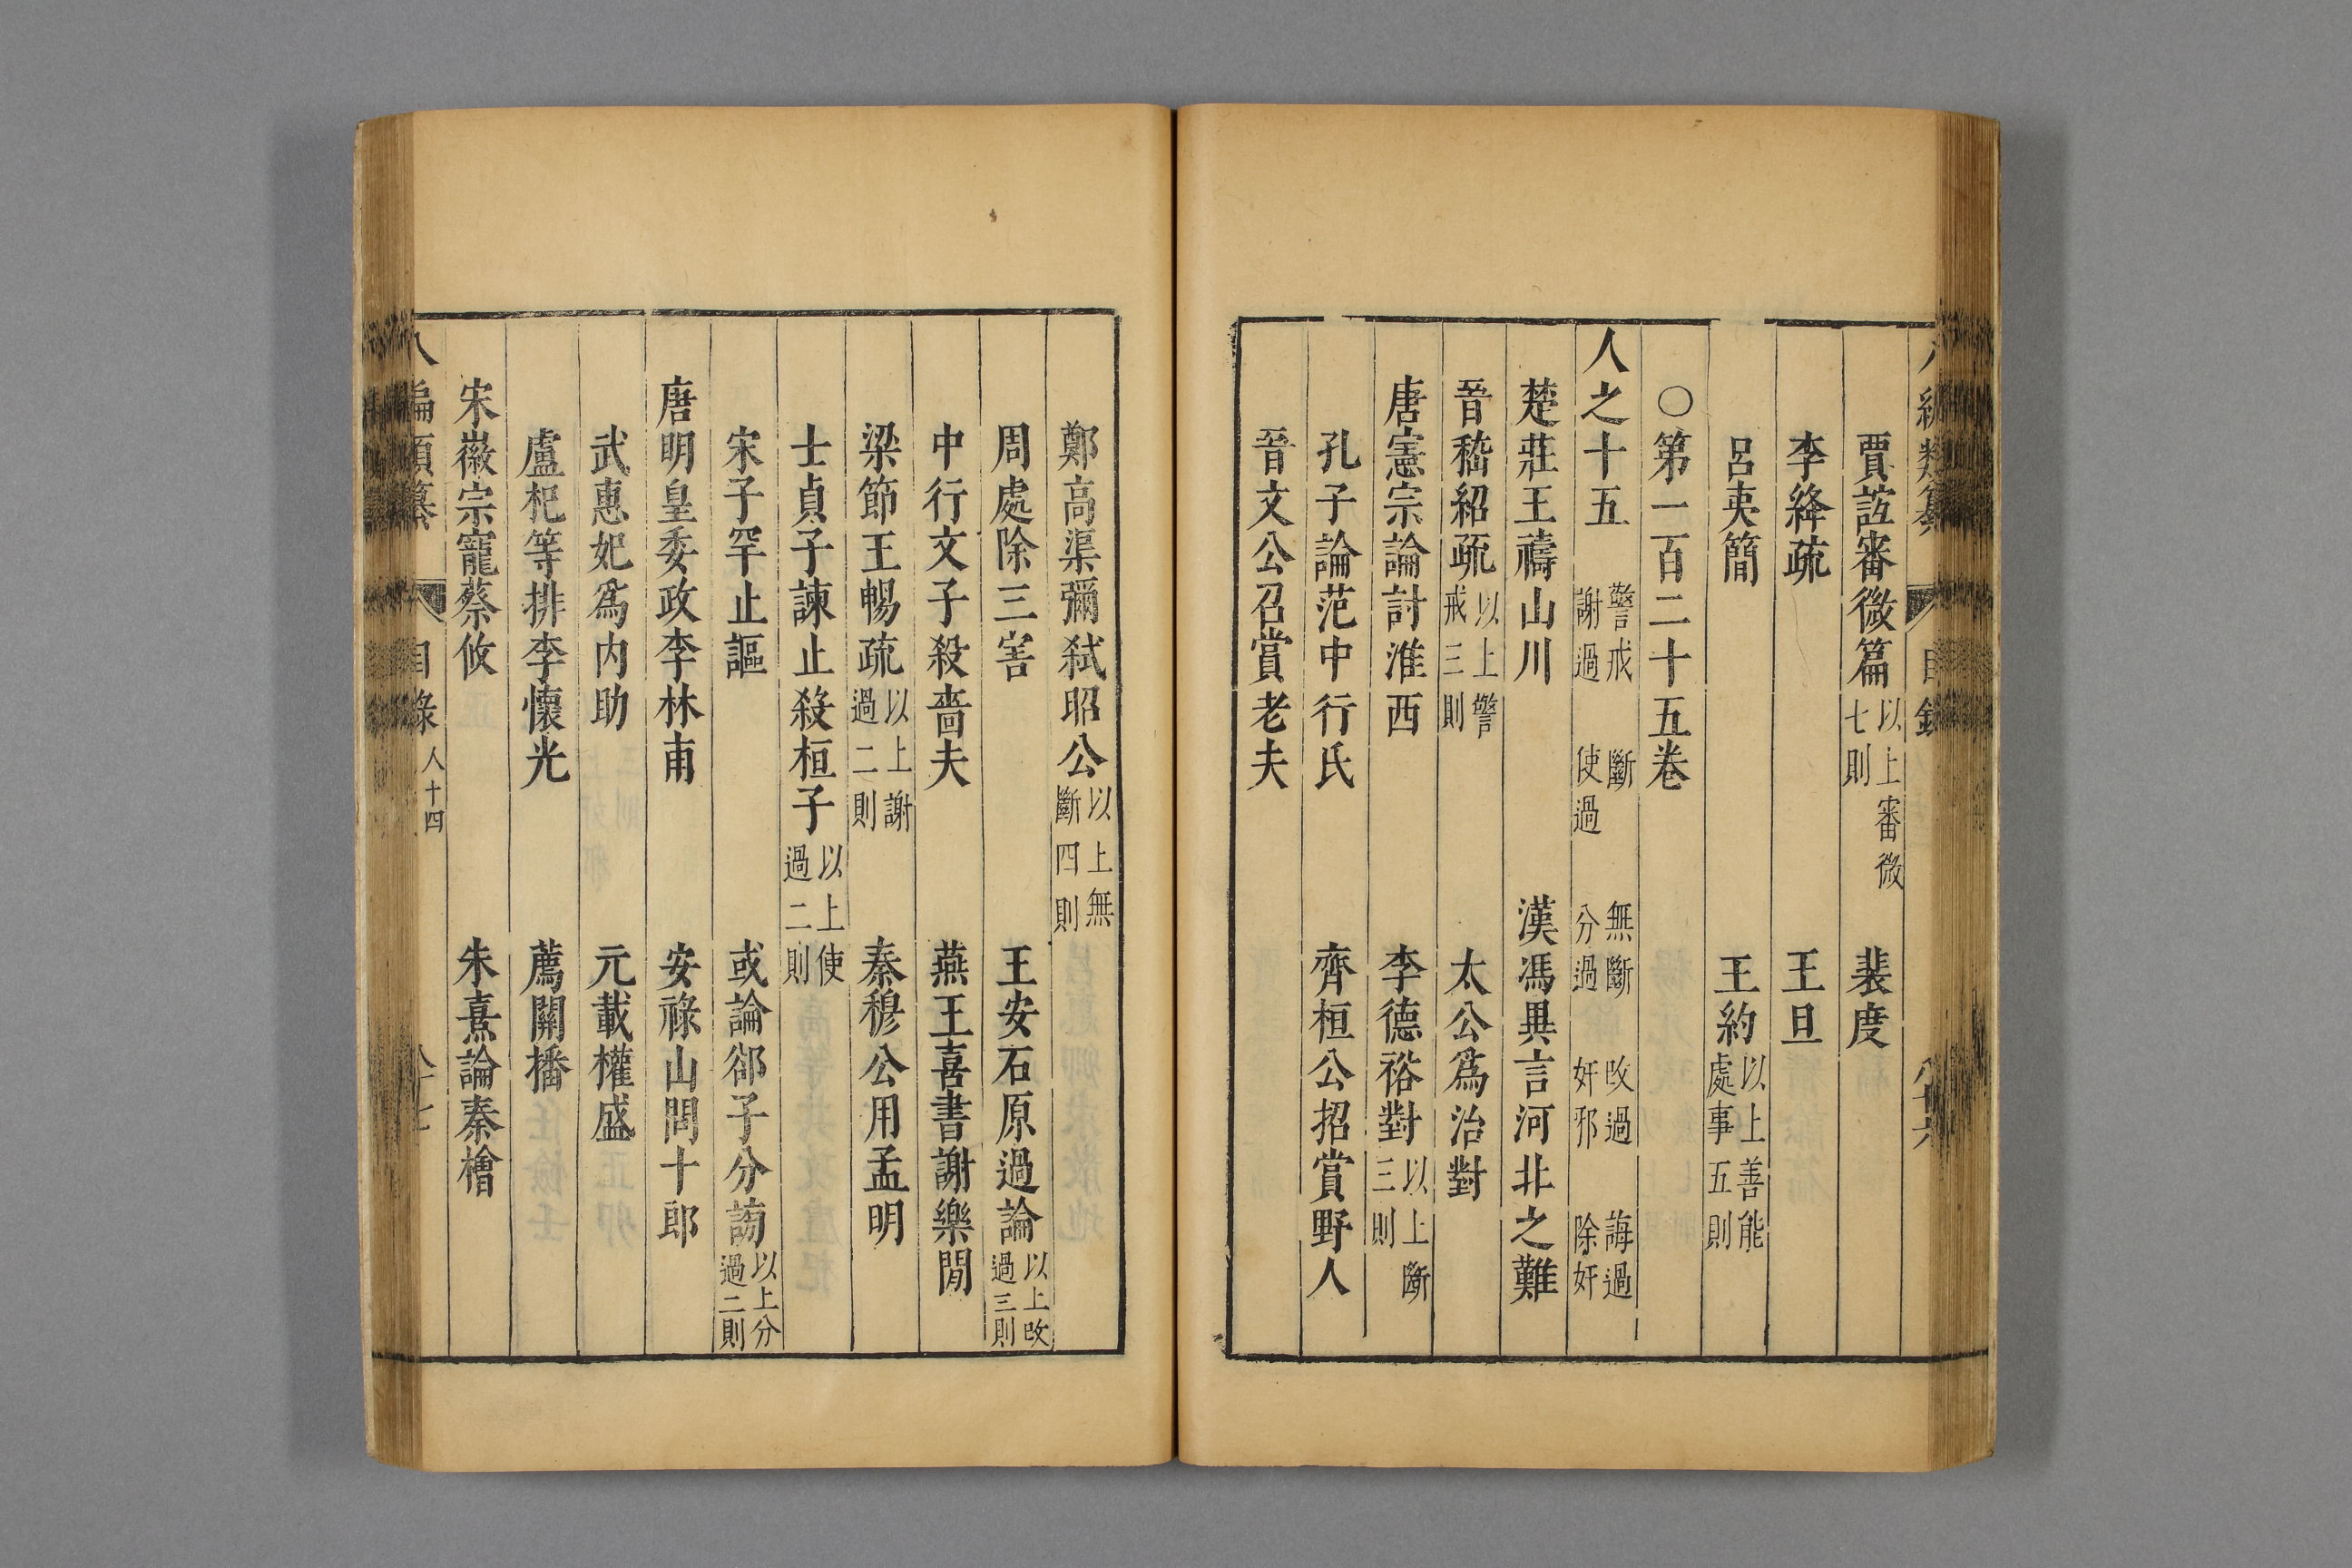 賈誼審微篇 以上審微七則 裴度
李絳疏 王旦
呂夷簡 王約 以上善能處事五則
○第一百二十五卷
人之十五 警戒 斷 無斷 改過 誨過 謝過 使過 分過 奸邪 除奸
楚莊王禱山川 漢馮異言河北之難
晉嵇紹疏 以上警戒三則 太公爲治對
唐憲宗論討淮西 李德裕對 以上斷三則
孔子論范中行氏 齊桓公招賞野人
晉文公召賞老夫
鄭高渠彌弑昭公 以上無斷四則
周處除三害 王安石原過論 以上改過三則
中行文子殺嗇夫 燕王喜書謝樂閒
梁節王暢疏 以上謝過二則 秦穆公用孟明
士貞子諫止殺桓子 以上使過二則
宋子罕止謳 或論郤子分謗 以上分過二則
唐明皇委政李林甫 安祿山問十郎
武惠妃爲內助 元載權盛
盧杞等排李懷光 薦關播
宋徽宗寵蔡攸 朱熹論秦檜
八編類纂 目錄 人十四